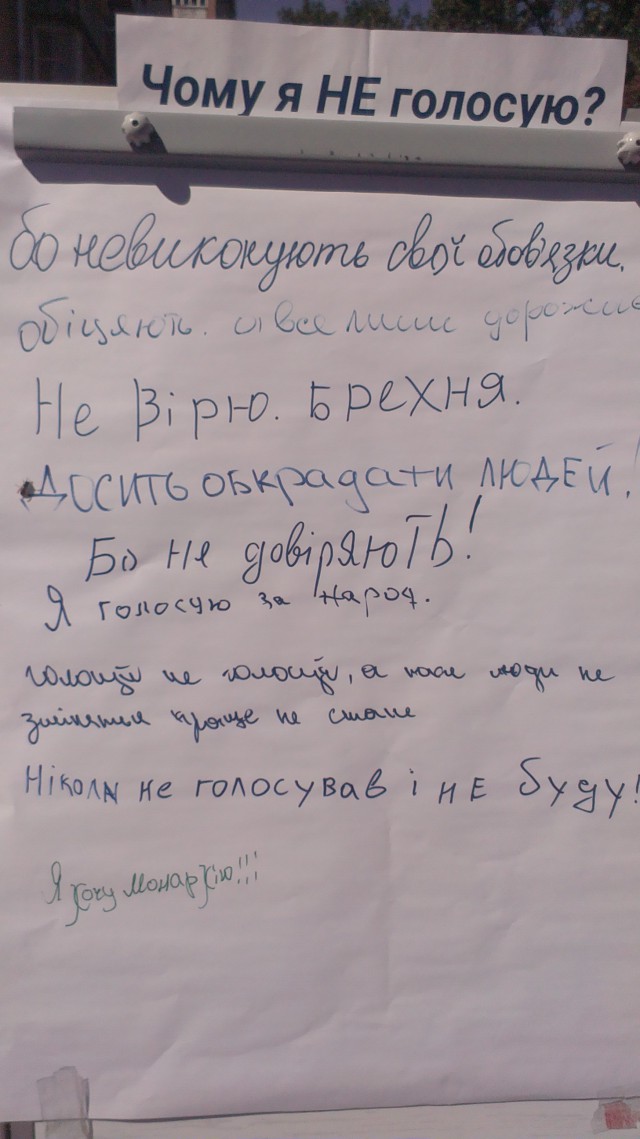 Чому я НЕ голосую?
бо невиконують свої обов'язки.
обіцяють. а все лише
Не вірю. Брехня.
Досить обкрадати людей!
Бо не довіряють!
Я голосую за народ.
голосуй не голосуй, а поки люди не
зміняться краще не стане
Ніколи не голосував і не буду!
Я хочу монархію!!!